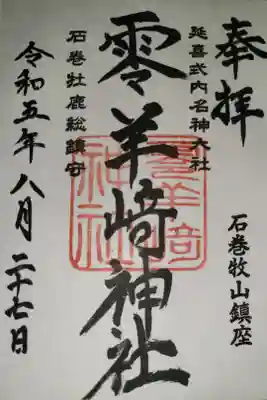 奉拝
石巻牧山鎮座
延喜式内名神大社
零羊﨑神社
石巻牡鹿総鎮守
令和五年八月二十七日
零羊崎神社